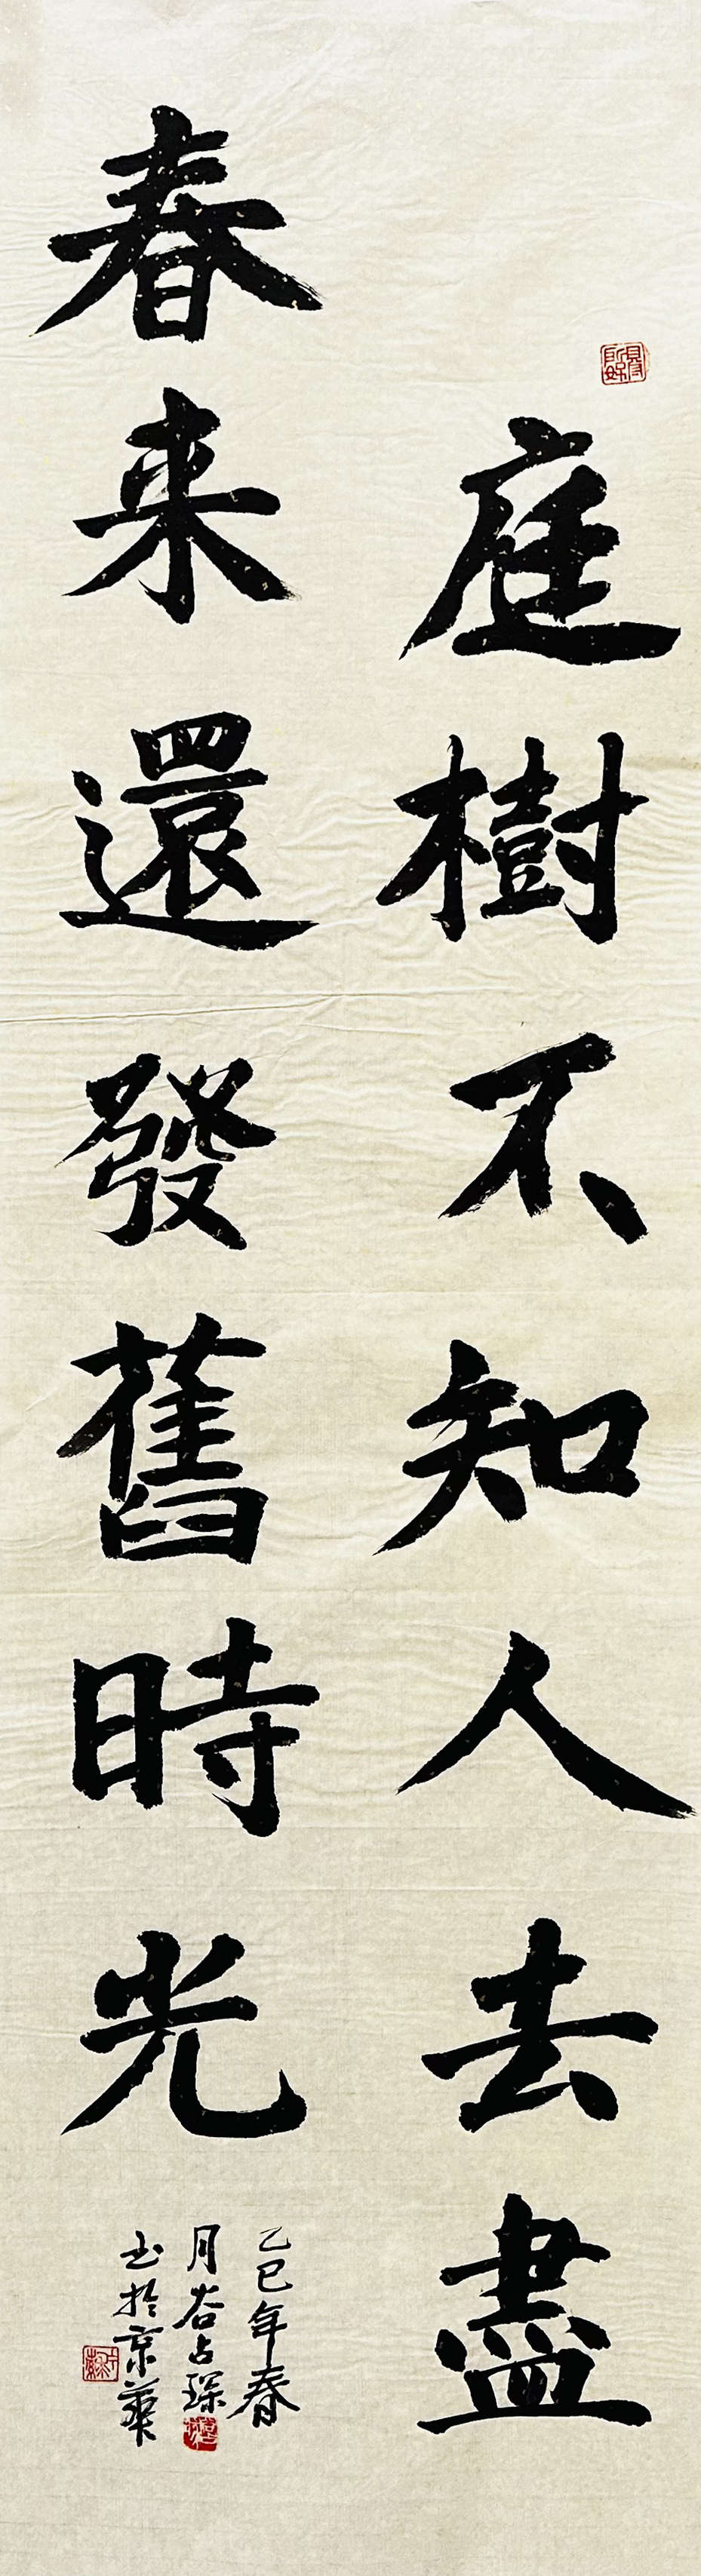 庭樹不知人去盡
春来還發舊時光
乙巳年春
月谷占琛
书於京華